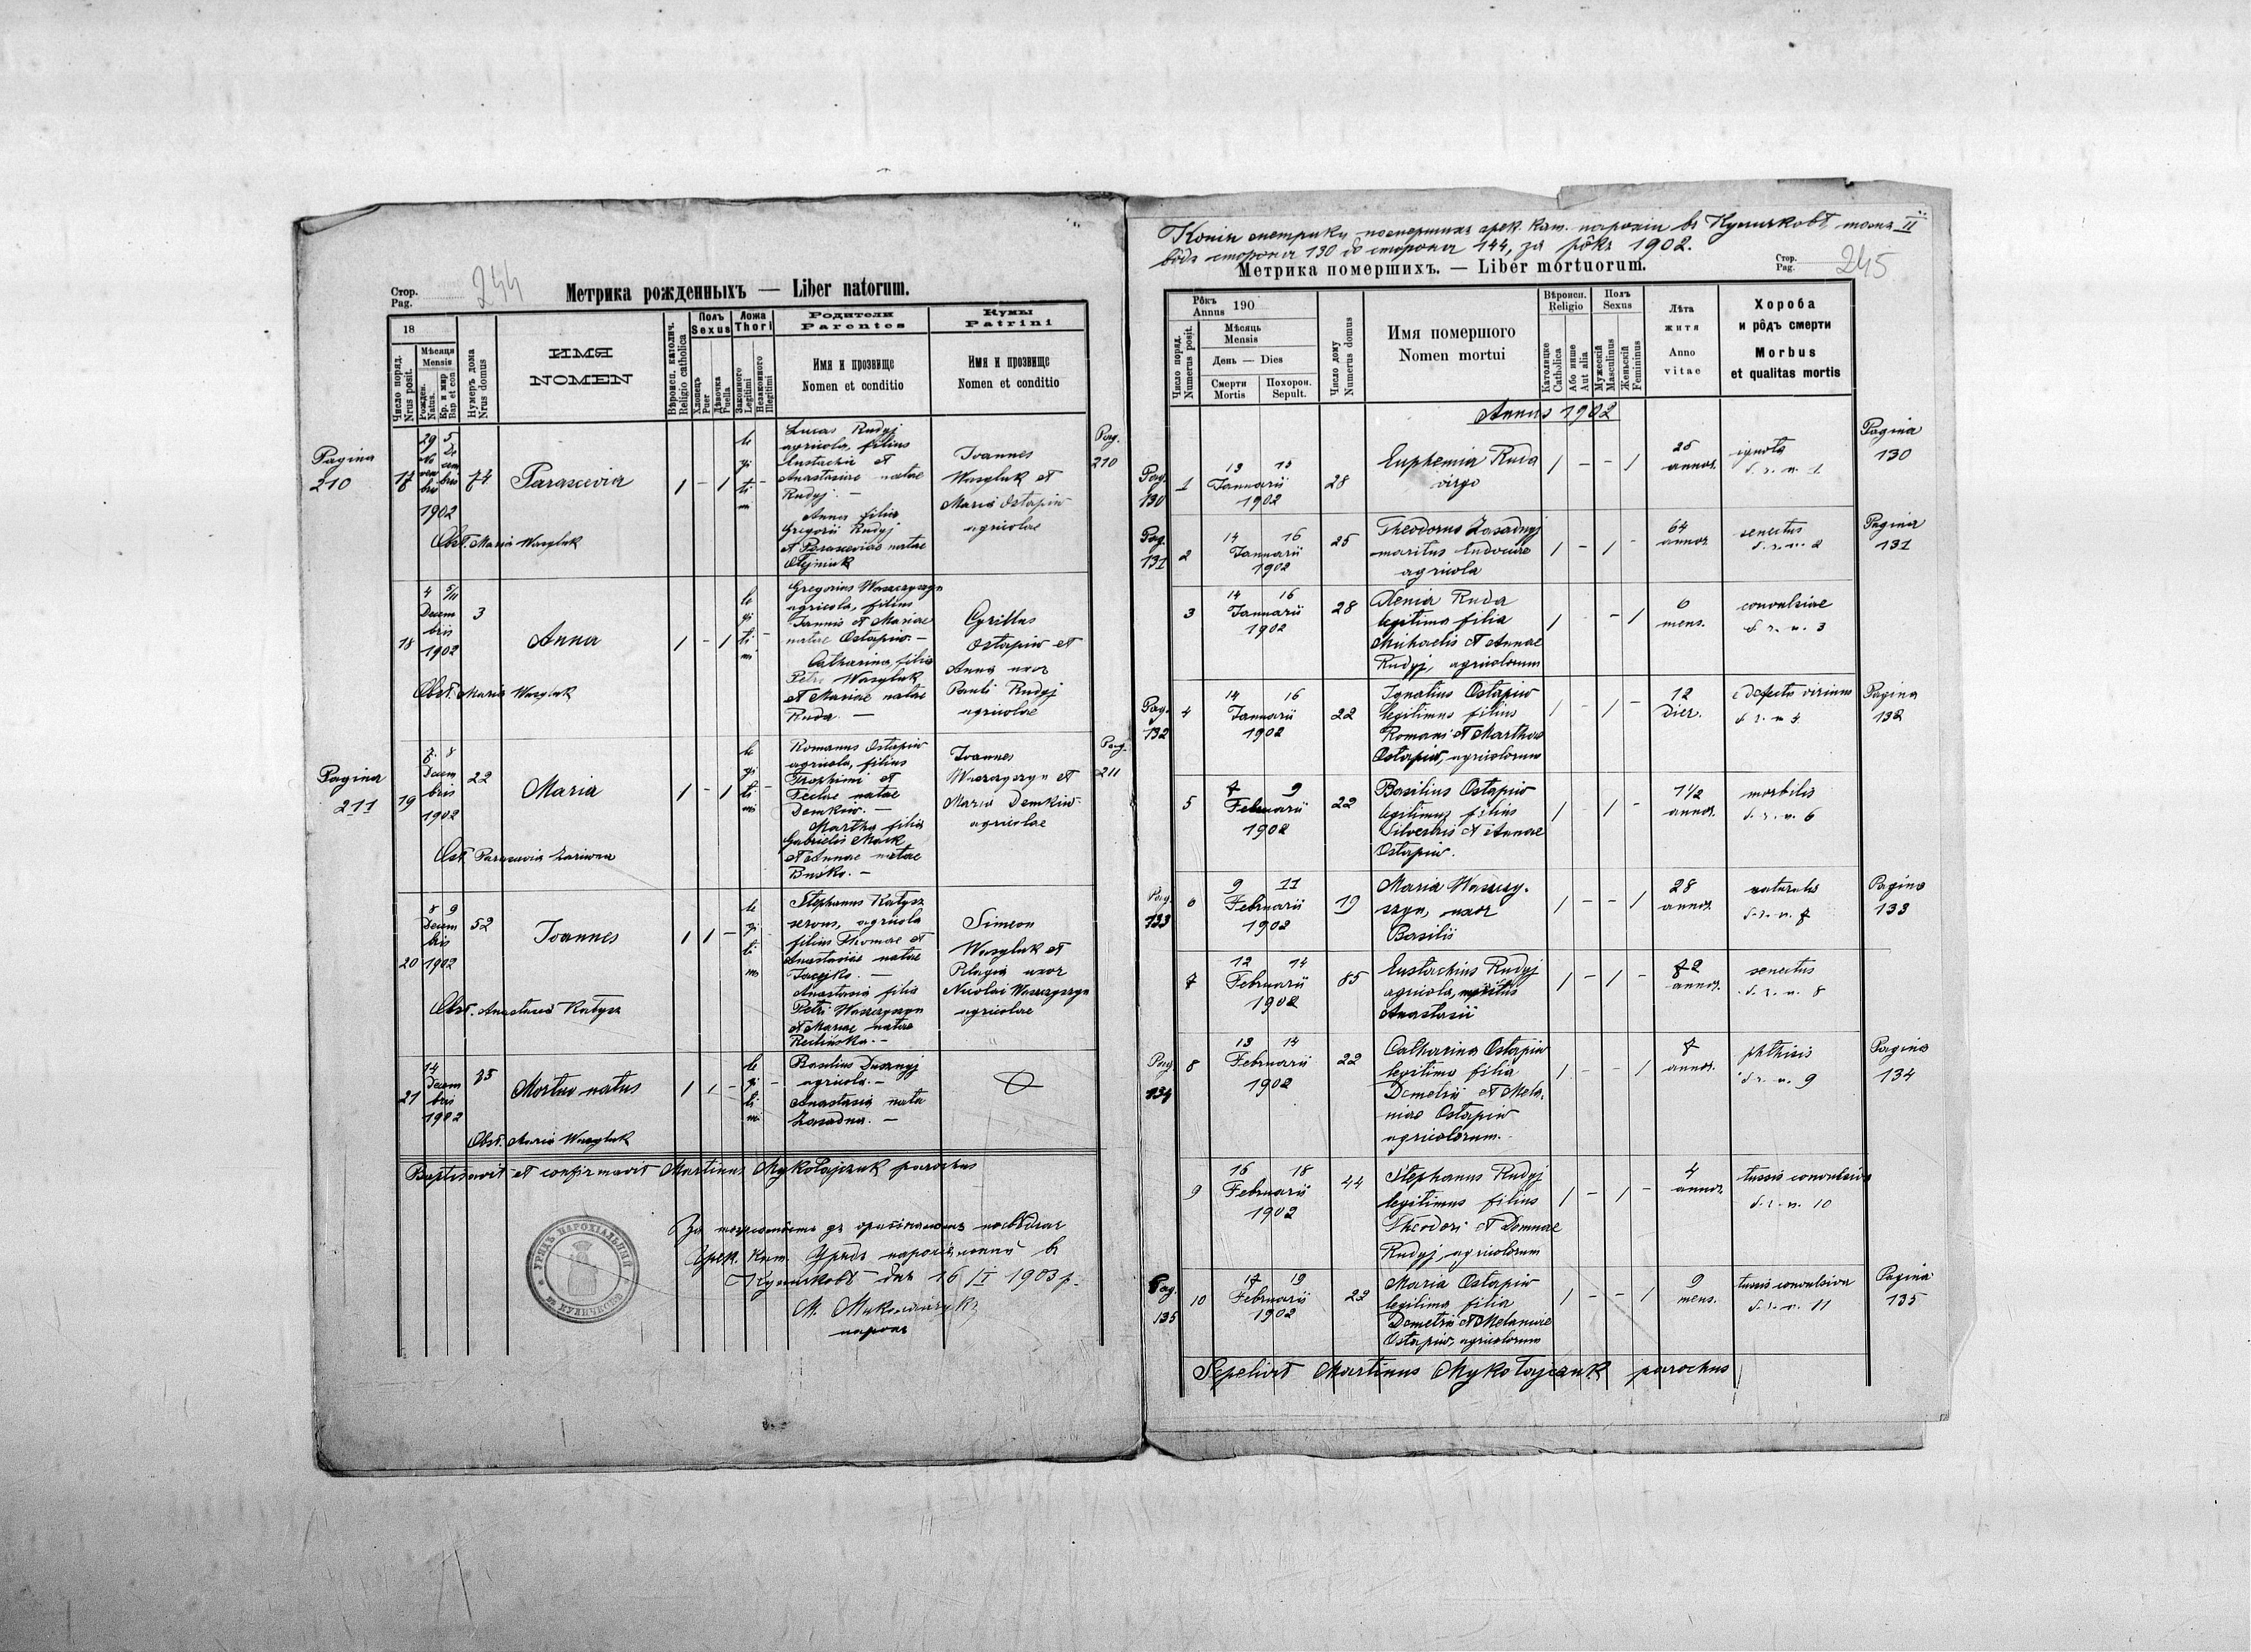 244
Стор.
Pag.
Метрика рожденныхъ — Liber natorum.
18
Число поряд.
Nrus posit.
Мѣсяця
Mensis
Рожден.
Natus.
Кр. и мѵр
Bap et con
Нумеръ дома
Nrus domus
ИМЯ
NOMEN
Вѣроисп. католич.
Religio catholica
Полъ
Sexus
Хлопець
Puer
Дѣвочка
Puella
Ложа
Thori
Законного
Legitimi
Незаконного
Illegitimi
Родители
Parentes
Имя и прозвище
Nomen et conditio
Кумы
Patrini
Имя и прозвище
Nomen et conditio
Pagina
210
29 5
1902
74
Parascevia
1 - 1
le
gi
ti
mi
Lucas Rudyj
agricola, filius
Eustachii et
Anastasiae natae
Rudyj. —
Anna filia
Gregorii Rudyj
et Parasceviae natae
Olejniuk
Joannes
Wasyluk et
Maria Ostapiw
agricolae
Pag.
210
Obst. Maria Wasyluk
18
4 5/11
Decem
bris
1902
3
Anna
1 - 1 -
le
gi
ti
mi
Gregorius Waszczyszyn
agricola, filius
Joannis et Mariae
natae Ostapiw. —
Catharina, filia
Petri Wasyluk
et Mariae natae
Ruda. —
Cyrillus
Ostapiw et
Anna uxor
Pauli Rudyj
agricolae
Obst. Maria Wasyluk
Pagina
211
19
8
Decem
bris
1902
22
Maria
1 - 1 -
le
gi
ti
mi
Romanus Ostapiw
agricola, filius
Trophimi et
Teclae natae
Demkiw. —
Martha filia
Gabrielis Mack
et Annae natae
Busko. —
Joannes
Waszczyszyn et
Maria Demkiw
agricolae
Pag.
211
Obst. Parascevia
20
8 9
Decem
bris
1902
52
Joannes
1 1 -
le
gi
ti
mi
Stephanus Katysz
agricola
filius Thomae et
Anastasiae natae
Anastasia filia
Petri Waszczyszyn
et Mariae natae
Simeon
Wasyluk et
Pelagia uxor
Nicolai Waszczyszyn
agricolae
Obst. Anastasia Katysz
21
14
Decem
bris
1902
75
Mortuo natus
1 1 -
le
gi
ti
mi
Basilius
agricola. —
Anastasia nata
Zasadna. —
Obst. Maria Wasyluk
Baptisavit et confirmavit Martinus Mykołajczuk parochus
За
Грек. Кат. Урядъ парохіяльный въ
Куличковѣ дня 16/I 1903 р.
М. Миколайчукъ
парох
УРЯДЪ ПАРОХІАЛЬНЫЙ
въ КУЛИЧКОВѢ
Копія метрики померших грек. кат. парохіи въ Куличковѣ томъ II
вôдъ стороны 130 до стороны 144, за рôкъ 1902.
Метрика померших​ъ. — Liber mortuorum.
Стор.
Pag.
245
Рôкъ
Annus 190
Число поряд.
Numerus posit.
Мѣсяць
Mensis
День — Dies
Смерти
Mortis
Похорон.
Sepult.
Число дому
Numerus domus
Имя помершого
Nomen mortui
Вѣроисп.
Religio
Католицке
Catholica
Або инше
Aut alia
Полъ
Sexus
Мужескій
Masculinus
Женьскій
Femininus
Лѣта
житя
Anno
vitae
Хороба
и рôдъ смерти
Morbus
et qualitas mortis
Annus 1902
Pag.
130
1
13 15
Januarii
1902
28
Euphemia Ruda
virgo
1 - - 1
25
annor.
ignota
d. r. n. 1
Pagina
130
Pag.
131
2
14 16
Januarii
1902
25
Theodorus Zasadnyj
maritus Eudociae
agricola
1 - 1 -
64
annor.
senectus
d. r. n. 2
Pagina
131
3
14 16
Januarii
1902
28
Xenia Ruda
legitima filia
Michaelis et Annae
Rudyj, agricolorum
1 - 1
6
mens.
convulsiae
d. r. n. 3
Pag.
132
4
14 16
Januarii
1902
22
Ignatius Ostapiw
legitimus filius
Romani et Marthae
Ostapiw, agricolorum
1 - 1 -
12
dier.
defectus virium
d. r. n. 4
Pagina
132
5
7 9
Februarii
1902
22
Basilius Ostapiw
legitimus filius
Silvestris et Annae
Ostapiw.
1 1 -
1 1/2
annor.
morbilis
d. r. n. 6
Pag.
133
6
9 11
Februarii
1902
19
Maria Waszczy-
szyn, uxor
Basilii
1 - - 1
28
annor.
naturalis
d. r. n. 7
Pagina
133
7
12 14
Februarii
1902
85
Eustachius Rudyj
agricola, maritus
Anastasii
1 - 1 -
72
annor.
senectus
d. r. n. 8
Pag
134
8
13 14
Februarii
1902
22
Catharina Ostapiw
legitima filia
Demetrii et Mela-
niae Ostapiw
agricolorum.
1 - - 1
7
annor.
phthisis
d. r. n. 9
Pagina
134
9
16 18
Februarii
1902
44
Stephanus Rudyj
legitimus filius
Theodori et Domnae
Rudyj, agricolorum
1 - 1 -
4
annor.
tussis convulsiva
d. r. n. 10
Pag.
135
10
17 19
Februarii
1902
22
Maria Ostapiw
legitima filia
Demetrii et Melaniae
Ostapiw, agricolorum
1 - - 1
9
mens.
tussis convulsiva
d. r. n. 11
Pagina
135
Sepelivit Martinus Mykołajczuk parochus